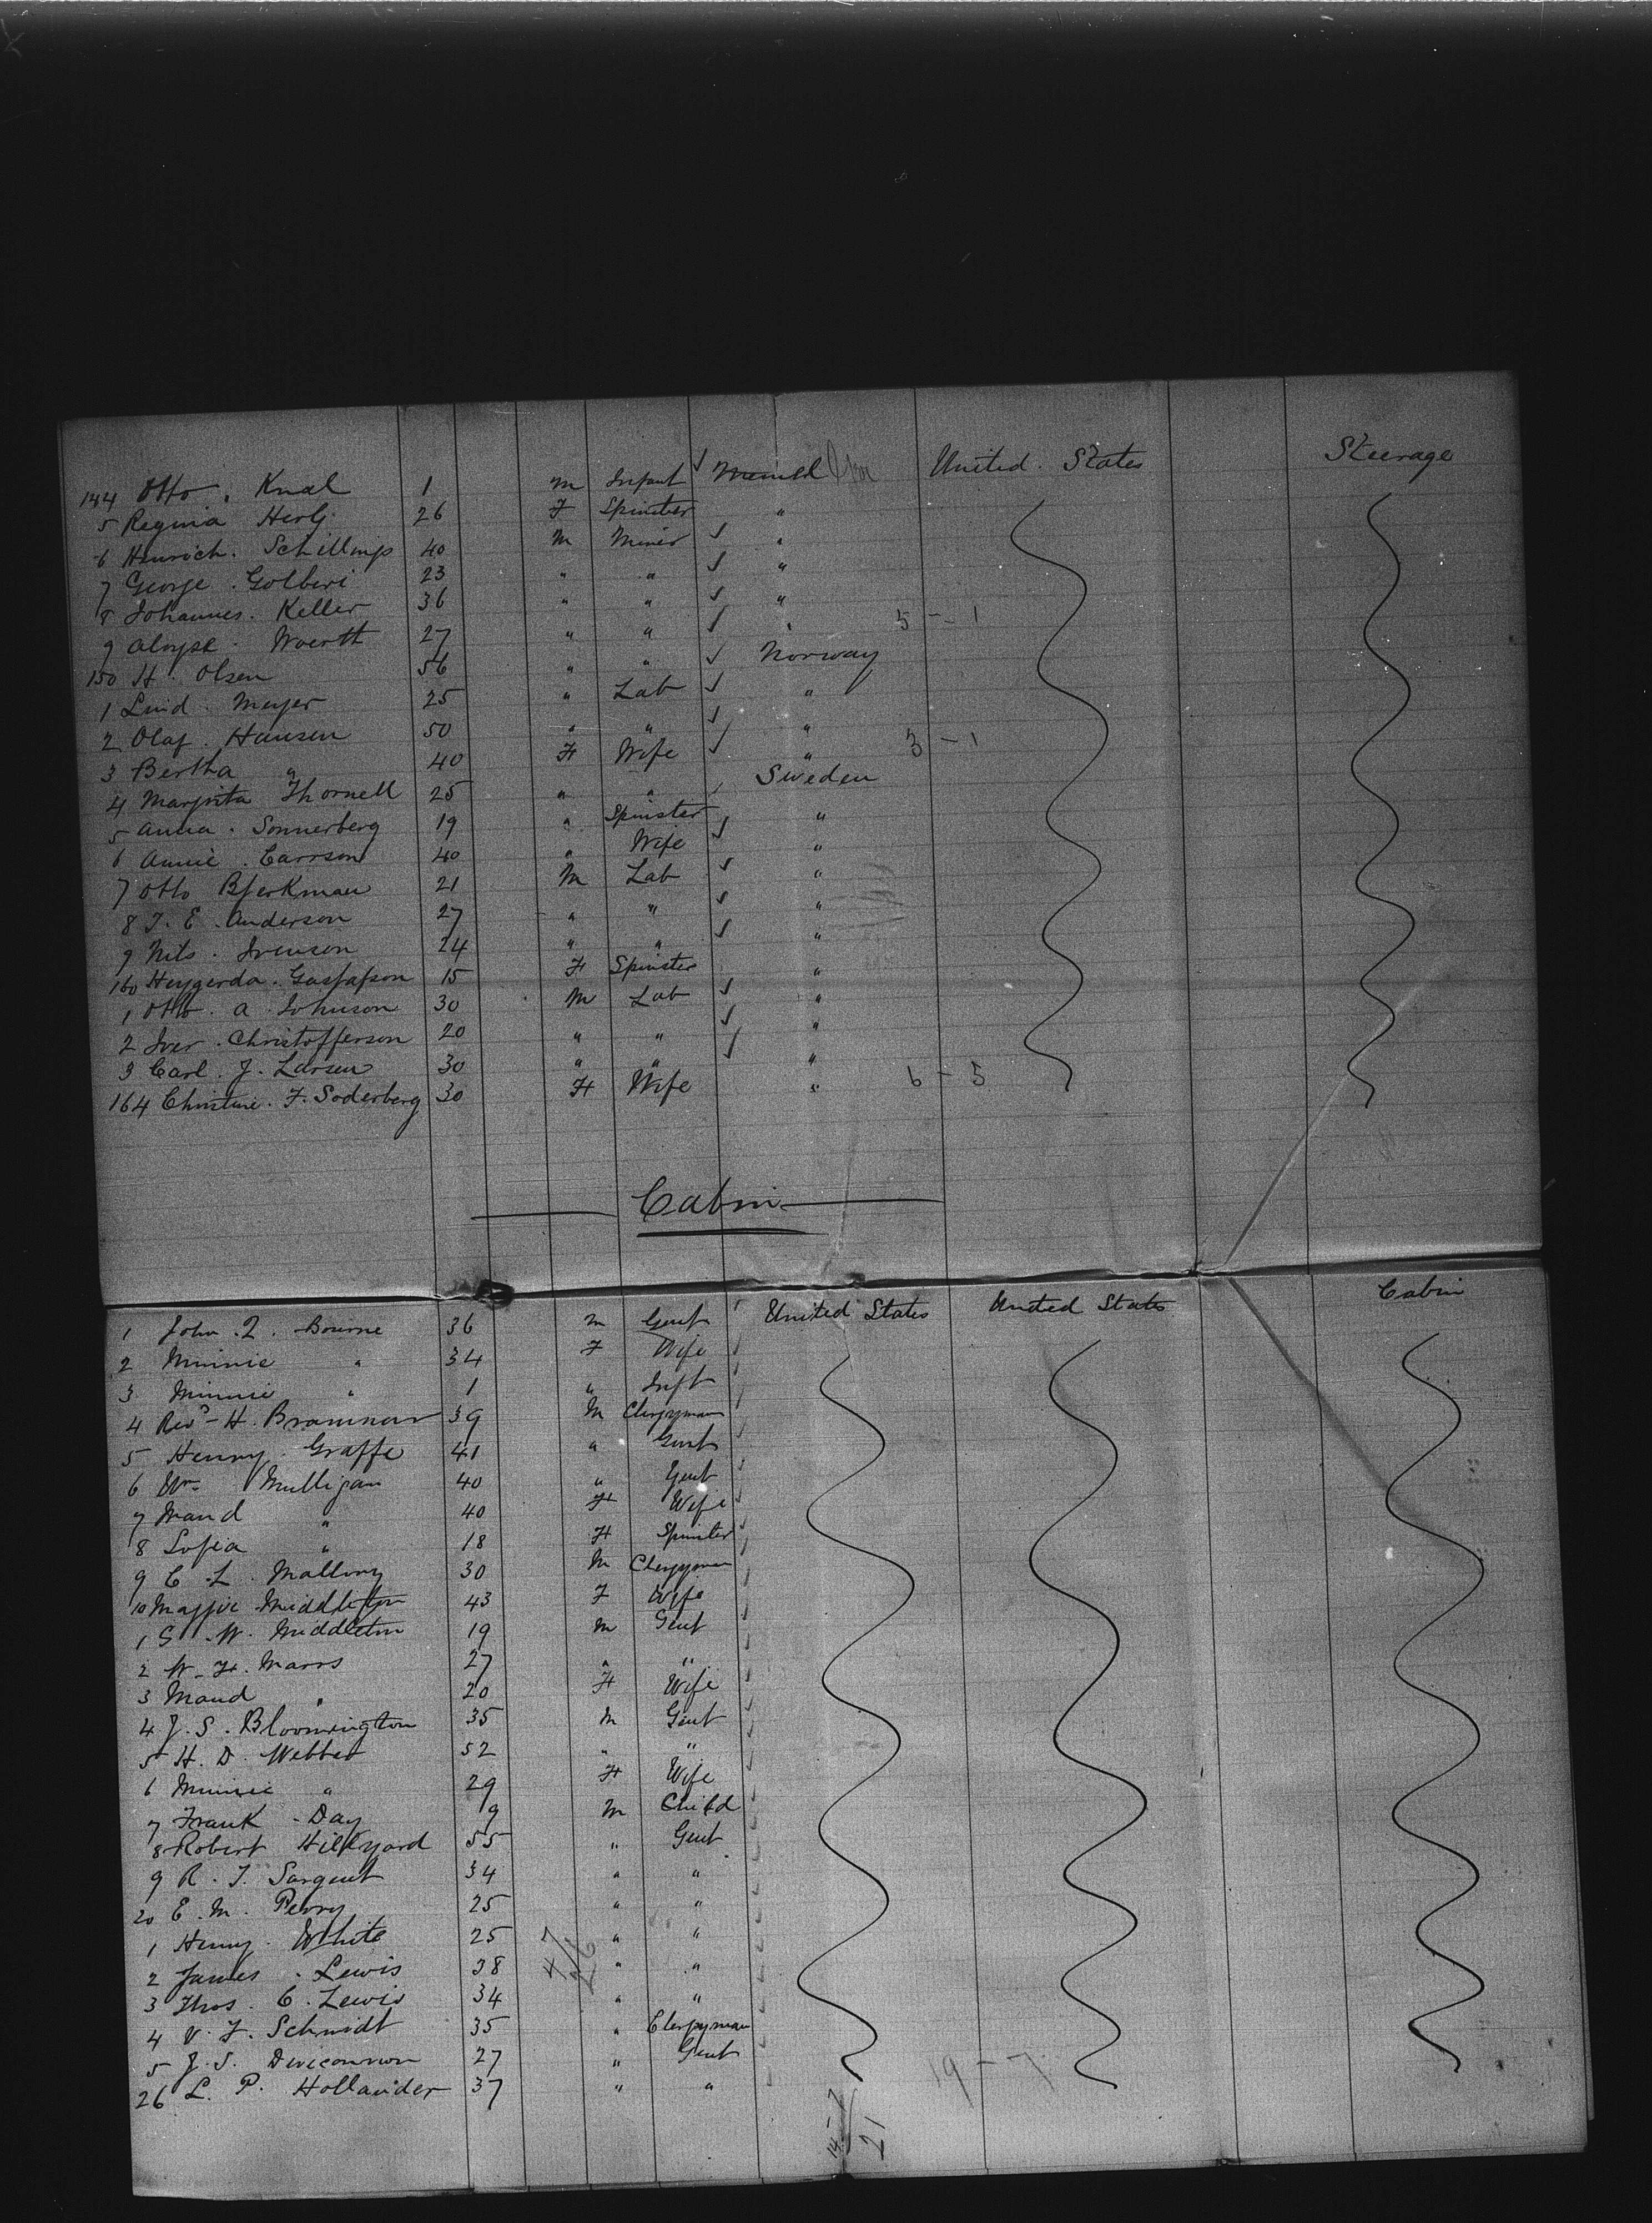 144 Otto . Knal 1 m Infant ✓ United . States Steerage
5 Regina Herlj 26 F Spinster "
6 Heinrich . Schillings 40 m Miner ✓ "
7 George . Golberi 23 " " ✓ "
8 Johannes . Keller 36 " " ✓ "
9 Aloyse . Woerth 27 " " ✓ " 5 - 1
150 H . Olsen 56 " " ✓ Norway
1 Luid . Meyer 25 " Lab ✓ "
2 Olaf . Hansen 50 " " ✓ "
3 Bertha " 40 F Wife ✓ " 3 - 1
4 Margrita Thornell 25 " " ✓ Sweden
5 Anna . Sonnerberg 19 " Spinster "
6 Annie . Carrson 40 " Wife ✓ "
7 Otto Bjerkman 21 M Lab ✓ "
8 J. E. Anderson 27 " " ✓ "
9 Nils . Svenson 24 " " ✓ "
160 Heygerda . Gustafson 15 F Spinster "
1 Otto . A . Johnson 30 M Lab ✓ "
2 Iver . Christofferson 20 " " ✓ "
3 Carl . J . Larsen 30 " " ✓ "
164 Christine . F. Soderberg 30 F Wife " 6 - 5
Cabin
1 John . Q . Bourne 36 m Gent ✓ United States United States Cabin
2 Minnie " 34 F Wife ✓
3 Minnie " 1 " Inft
4 Revd H . Bramnar 39 M Clergyman
5 Henry . Graffe 41 " Gent
6 Wm Mulligan 40 " Gent
7 Maud " 40 F Wife
8 Sofia " 18 F Spinster
9 C . L . Mallory 30 M Clergyman
10 Maggie Middleton 43 F Wife
1 S . W . Middleton 19 m Gent
2 W . H . Marrs 27 " "
3 Maud " 20 F Wife
4 J . S . Bloomington 35 m Gent
5 H . D . Webber 52 " "
6 Minnie " 29 F Wife
7 Frank . Day 9 M Child
8 Robert Hillyard 55 " Gent
9 R . T . Sargent 34 " "
20 E . M . Perry 25 " "
1 Henry . White 25 " "
2 James . Lewis 38 " "
3 Thos . C . Lewis 34 " "
4 V . F . Schmidt 35 " Clergyman
5 J . S . 27 " Gent 19 - 7
26 L . P . Hollander 37 " "
14 - 7
21